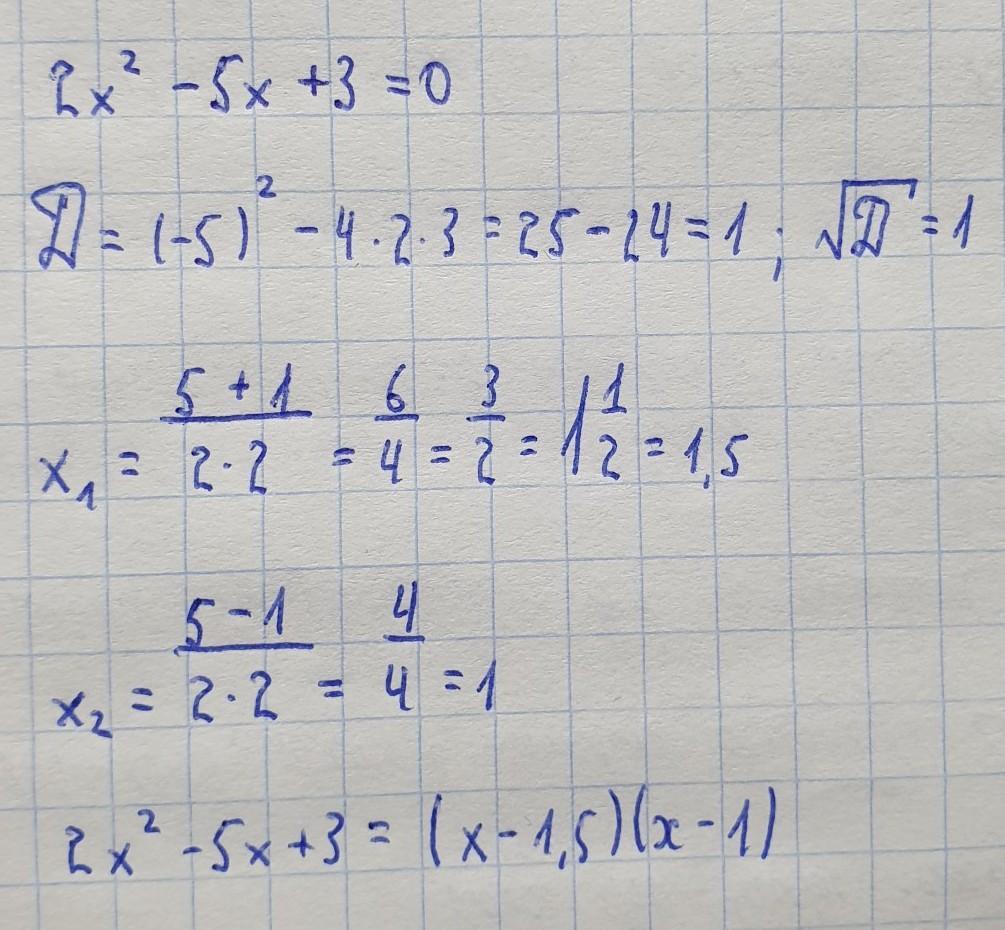 2x² - 5x + 3 = 0
D = (-5)² - 4·2·3 = 25 - 24 = 1 ; √D = 1
x₁ = (5 + 1)/(2·2) = 6/4 = 3/2 = 1 1/2 = 1,5
x₂ = (5 - 1)/(2·2) = 4/4 = 1
2x² - 5x + 3 = (x - 1,5)(x - 1)